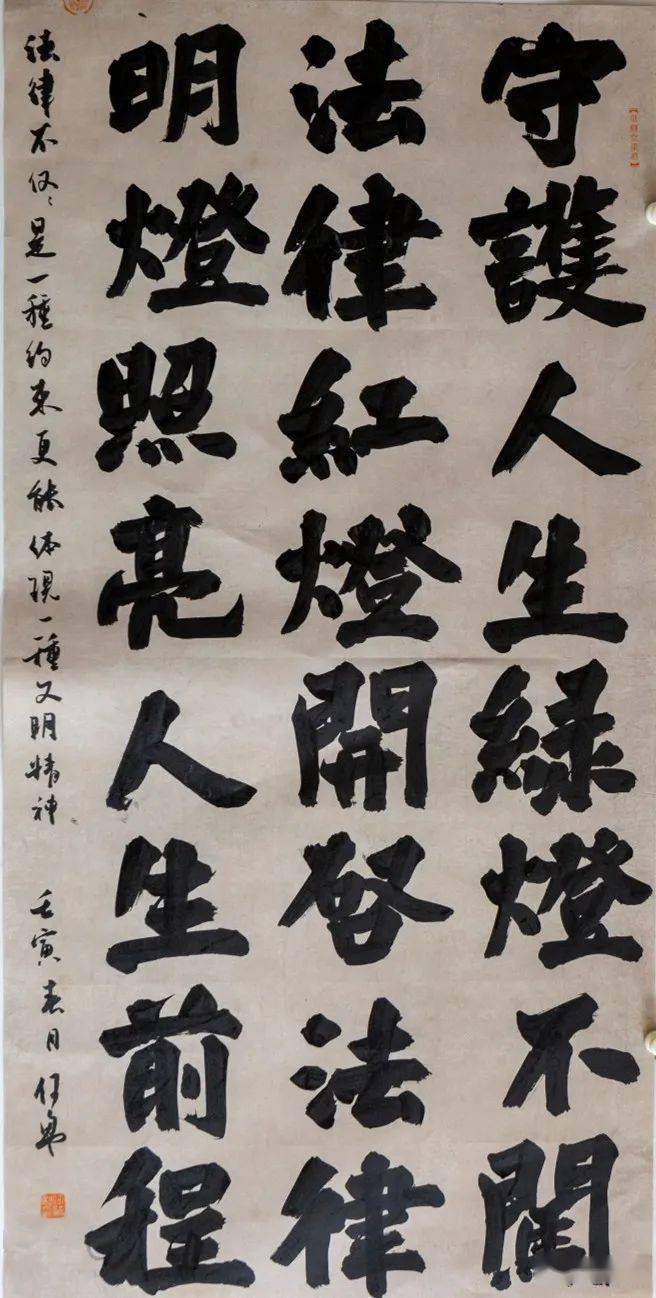 守護人生綠燈不闖
法律紅燈開啓法律
明燈照亮人生前程
法律不仅〻是一種约束更能体現一種文明精神 壬寅春月